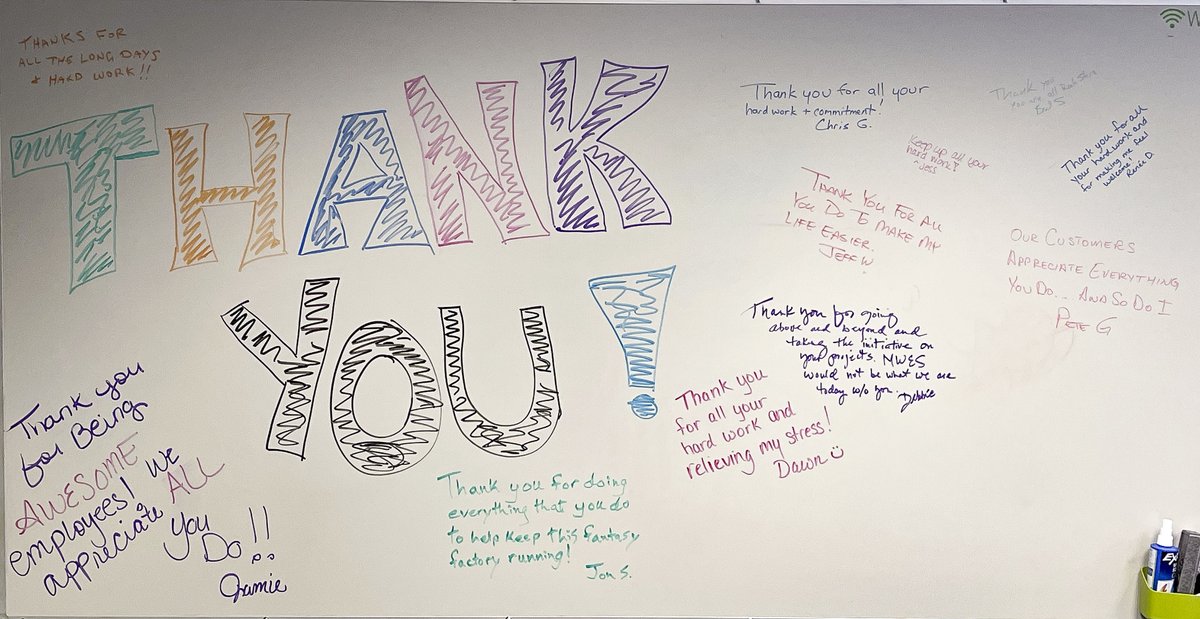 THANKS FOR
ALL THE LONG DAYS
+ HARD WORK!!
THANK
YOU!
Thank you for all your
hard work + commitment!
Chris G.
Thank you
you are all Rock Stars
Keep up all your
hard work!
- Jess
Thank you for all
your hard work and
for making me feel
welcome!
Renée D.
THANK YOU FOR ALL
YOU DO TO MAKE MY
LIFE EASIER.
JEFF W.
OUR CUSTOMERS
APPRECIATE EVERYTHING
YOU DO... AND SO DO I
PETE G
Thank you for going
above and beyond and
taking the initiative on
your projects. MWES
would not be what we are
today w/o you. Debbie
Thank you
for all your
hard work and
relieving my stress!
Dawn
Thank you for Being
AWESOME
employees! We
appreciate ALL
you
Do!!
Jamie
Thank you for doing
everything that you do
to help keep this fantasy
factory running!
Jon S.
W
EX